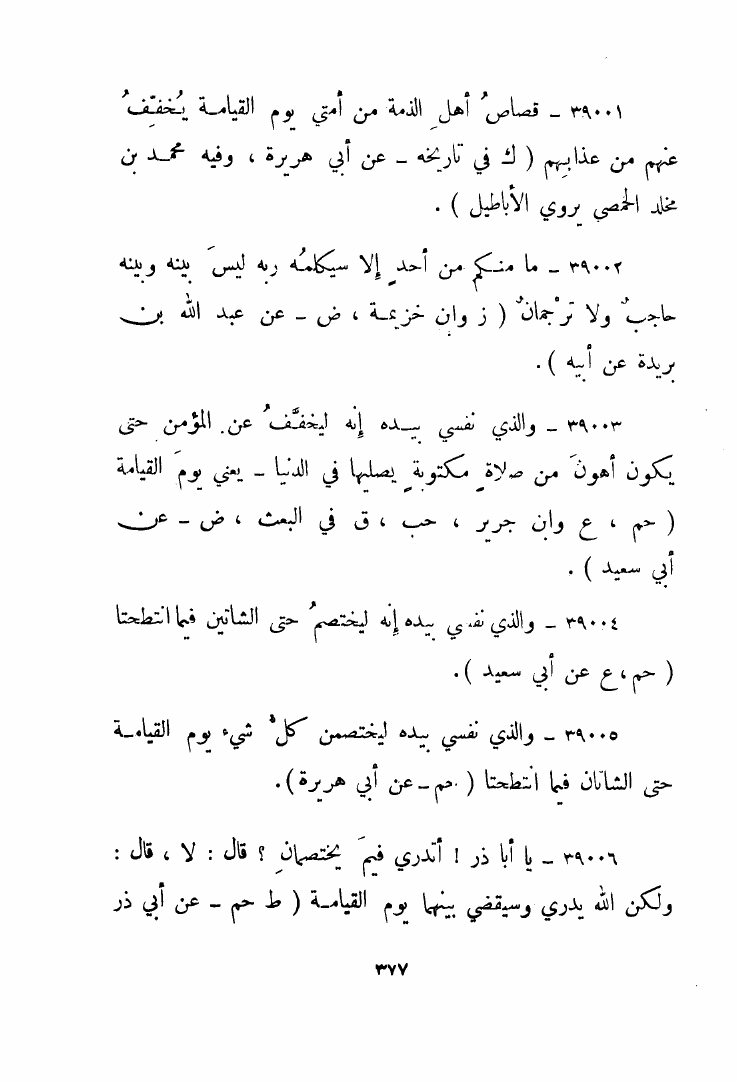 ٣٩٠٠١ ـ قصاصُ أهلِ الذمة من أمتي يوم القيامـة يُخفِّفُ
عنهم من عذابِهم ( ك في تاريخه ـ عن أبي هريرة ، وفيه محمـد بن
مخلد الحمصي يروي الأباطيل ) .
٣٩٠٠٢ ـ ما منـكم من أحدٍ إلا سيكلمُه ربه ليسَ بينه وبينه
حاجبٌ ولا ترْجمانٌ ( ز وابن خزيمـة ، ض ـ عن عبد الله بن
بريدة عن أبيه ) .
٣٩٠٠٣ ـ والذي نفسي بيـده إنه ليخفَّفُ عن المؤمن حتى
يكون أهونَ من صلاةٍ مكتوبةٍ يصليها في الدنيا ـ يعني يومَ القيامة
( حم ، ع وابن جرير ، حب ، ق في البعث ، ض ـ عن
أبي سعيد ) .
٣٩٠٠٤ ـ والذي نفسي بيده إنه ليختصمُ حتى الشاتين فيما انتطحتا
( حم ، ع عن أبي سعيد ) .
٣٩٠٠٥ ـ والذي نفسي بيده ليختصمن كلُّ شيء يوم القيامـة
حتى الشاتان فيما انتطحتا ( حم ـ عن أبي هريرة ) .
٣٩٠٠٦ ـ يا أبا ذر ! أتدري فيمَ يختصمانِ ؟ قال : لا ، قال :
ولكن الله يدري وسيقضي بينهما يوم القيامـة ( ط حم ـ عن أبي ذر
٣٧٧